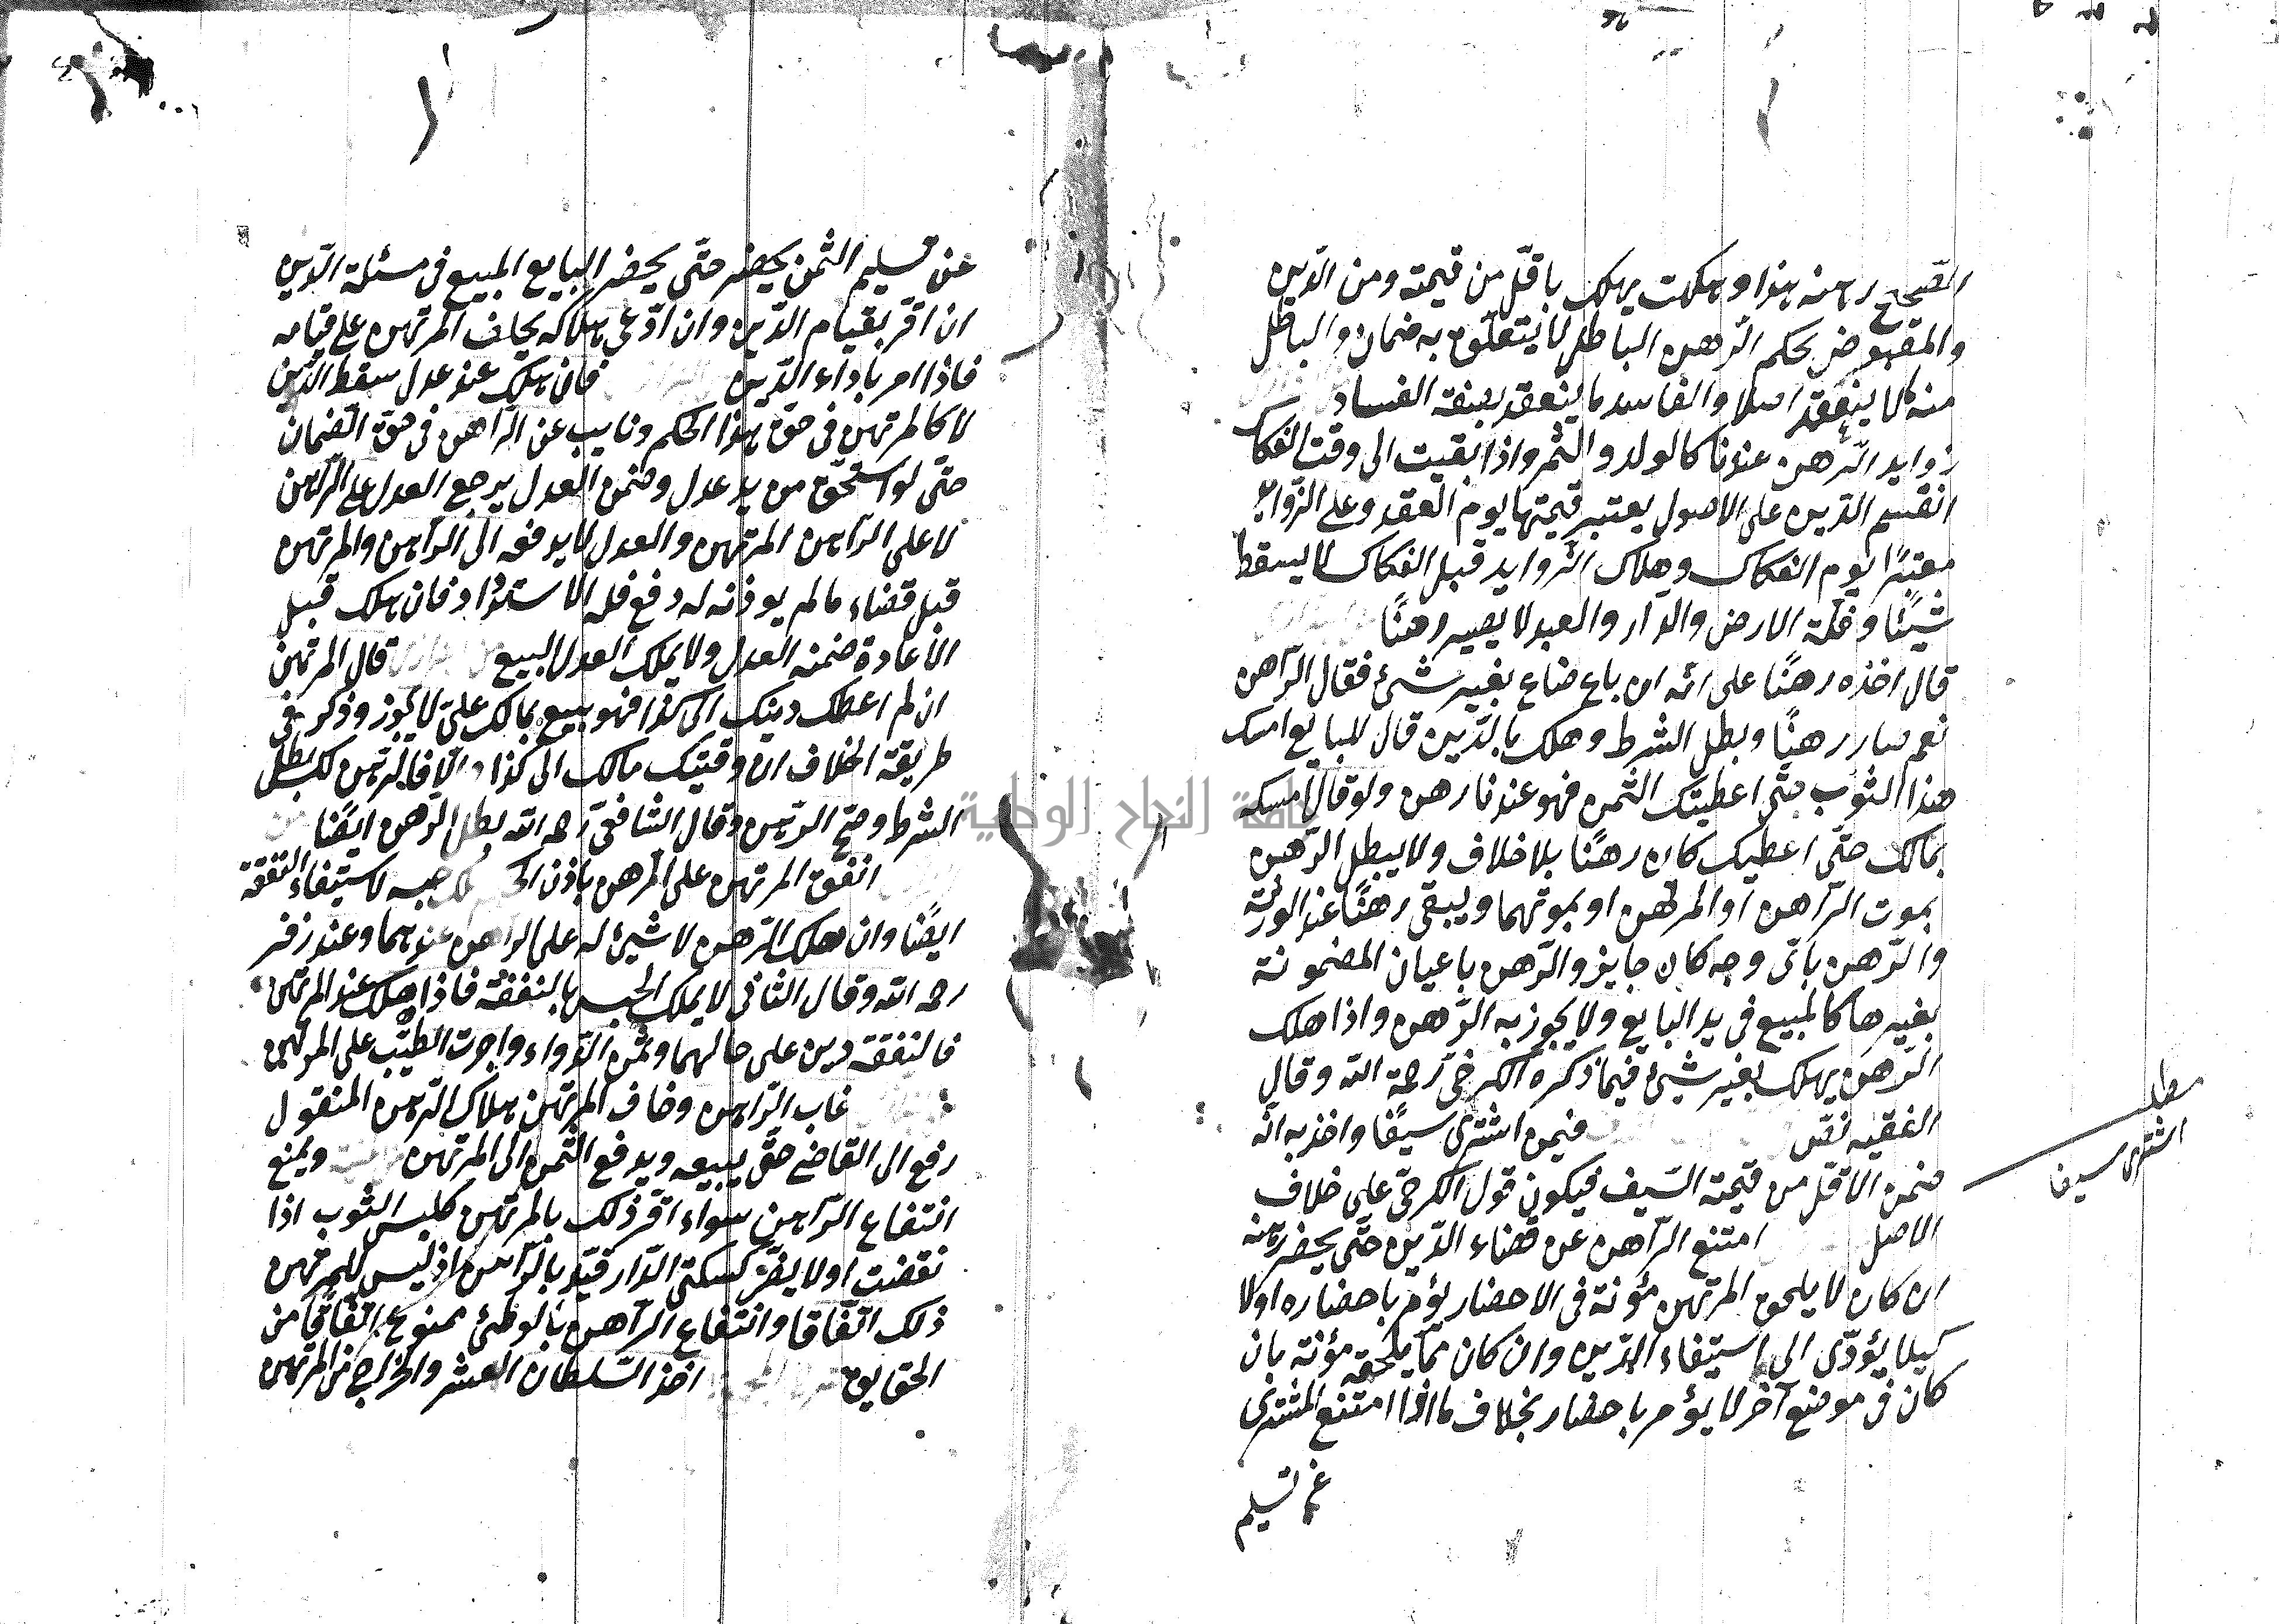 الصحيح رهنه هذا وهلكت يهلك باقل من قيمته ومن الدين
والمقبوض بحكم الرهن الباطل لا يتعلق به ضمان والباطل
منه كما لا ينعقد اصلا والفاسد ما ينعقد بصفة الفساد
زوايد الرهن عندنا كالولد والثمر واذا بقيت الى وقت الفكاك
انقسم الدين على الاصول يعتبر قيمتها يوم العقد وعلى الزوايد
معتبرا يوم الفكاك وهلاك الزوايد قبل الفكاك لا يسقط
شيئا وغلة الارض والدار والعبد لا يصير رهنا
قال اخذه رهنا على انه ان باع ضاع بغير شئ فقال الراهن
نعم صار رهنا وبطل الشرط وهلك بالدين قال للبايع امسك
هذا الثوب حتى اعطيتك الثمن فهو عندنا رهن ولو قال امسكه
بمالك حتى اعطيك كان رهنا بلا خلاف ولا يبطل الرهن
بموت الراهن او المرتهن او بموتهما ويبقى رهنا عند الورثة
والرهن باى وجه كان جايز والرهن باعيان المضمونة
بغيرها كالمبيع فى يد البايع ولا يجوز به الرهن واذا هلك
الرهن يهلك بغير شئ فيما ذكره الكرخى رحمة الله وقال
الفقيه نص فيمن اشترى سيفا واخذ به انه
ضمن الاقل من قيمته السيف فيكون قول الكرخى على خلاف
الاصل امتنع الراهن عن قضاء الدين حتى يحضر رهنه
ان كان لا يلحق المرتهن مؤنة فى الاحضار يؤمر باحضاره اولا
كيلا يؤدى الى استيفاء الدين وان كان مما يلحقه مؤنة بان
كان فى موضع آخر لا يؤمر باحضار بخلاف ما اذا امتنع المشترى
عن تسليم
مطلب
اشترى سيفا
عن تسليم الثمن يحضر حتى يحضر البايع المبيع فى مسئلة الدين
ان اقر بقيام الدين وان ادعى هلاكه يحلف المرتهن على قيامه
فاذا امر باداء الدين فان هلك عند عدل سقط الدين
لا كالمرتهن فى حق هذا الحكم ونايب عن الراهن فى حق الضمان
حتى لو استحق من يد عدل وضمن العدل يرجع العدل على الراهن
لا على الراهن المرتهن والعدل لا يدفعه الى الراهن والمرتهن
قبل قضاء ما لم يوذنه له دفع فله الاسترداد فان هلك قبل
الاعادة ضمنه العدل ولا يملك العدل البيع قال المرتهن
ان لم اعطك دينك الى كذا فهو بيع بمالك على لا يجوز وذكر فى
طريقة الخلاف ان وقيتك مالك الى كذا والا فالرهن لك بطل
الشرط وصح الرهن وقال الشافعى رحمه الله بطل الرهن ايضا
انفق المرتهن على الرهن باذن حبسه لاستيفاء النفقة
ايضا وان هلك الرهن لا شئ له على الراهن عندهما وعند زفر
رحمه الله وقال الثانى لا يملك الحبس بالنفقة فاذا هلك عند المرتهن
فالنفقة دين على حالهما وثمن الدواء واجرت الطبيب على المرتهن
غاب الراهن وخاف المرتهن هلاك الرهن المنقول
رفع الى القاضى حتى يبيعه ويدفع الثمن الى المرتهن ويمنع
انتفاع الراهن سواء اقر ذلك بالمرتهن كلبس الثوب اذا
نقضت اولا يضر كسكنى الدار قيد بالراهن اذ ليس للمرتهن
ذلك اتفاقا وانتفاع الراهن بالوطئ ممنوع اتفاقا من
الحقايق اخذ السلطان العشر والخراج من المرتهن